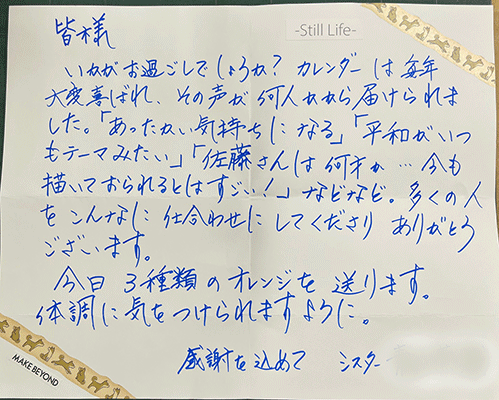 -Still Life-
皆様
いかがお過ごしでしょうか？カレンダーは毎年
大変喜ばれ、その声が何人かから届けられま
した。「あったかい気持ちになる」「平和がいつ
もテーマみたい」「佐藤さんは何才か…今も
描いておられるとはすごい！」などなど。多くの人
をこんなに仕合わせにしてくださり ありがとう
ございます。
今日 3種類のオレンジを送ります。
体調に気をつけられますように。
感謝を込めて シスター
MAKE BEYOND